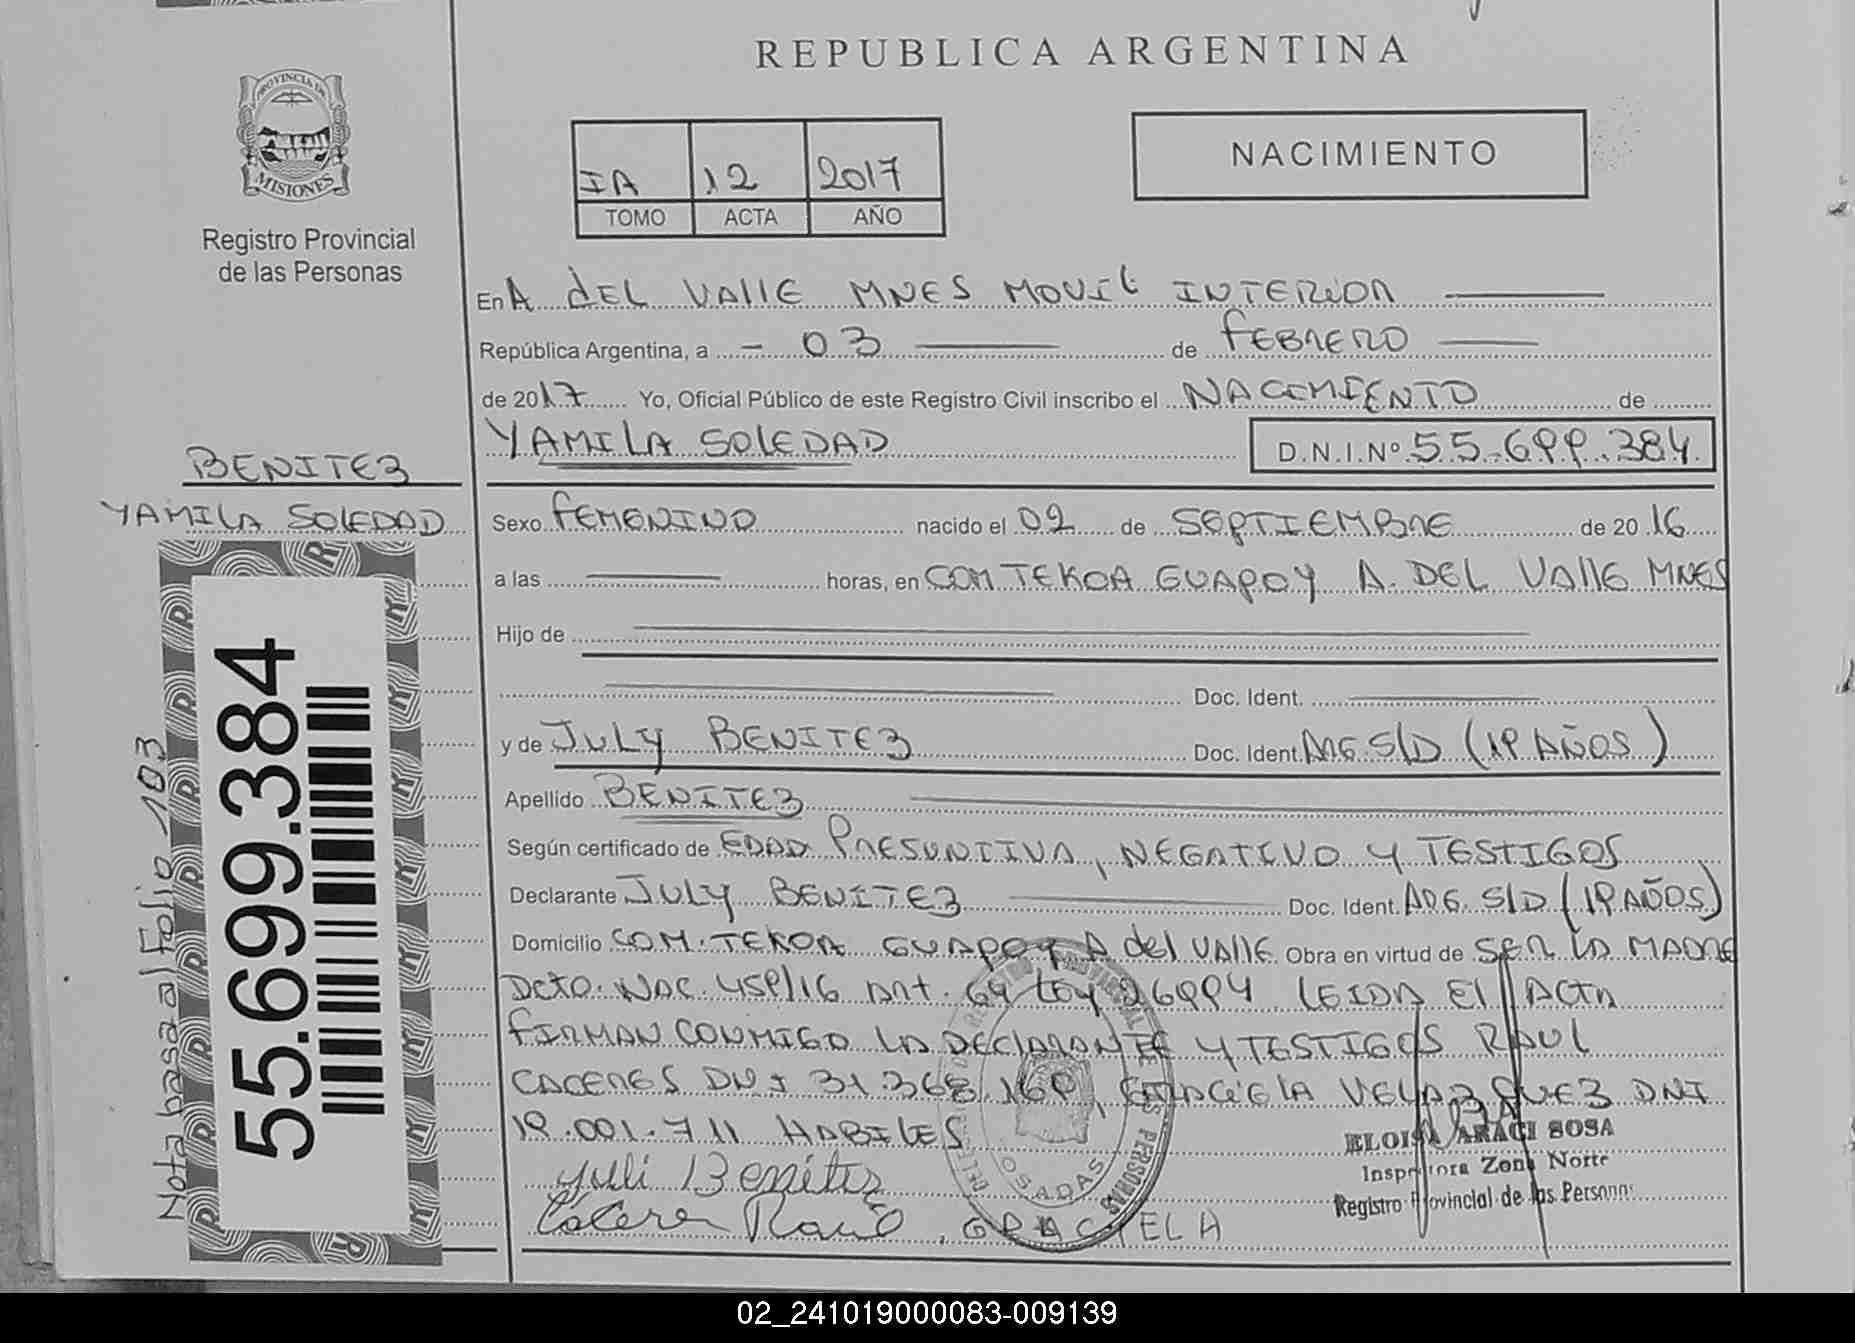 REPUBLICA ARGENTINA
PROVINCIA DE
MISIONES
Registro Provincial
de las Personas
IA 12 2017
TOMO ACTA AÑO
NACIMIENTO
En A. dEL VALLE MNES MOVIL INTERIOR
República Argentina, a - 03 de FEBRERO
de 2017 Yo, Oficial Público de este Registro Civil inscribo el NACIMIENTO de
YAMILA SOLEDAD D.N.I.Nº 55.699.384
BENITEZ
YAMILA SOLEDAD
Sexo FEMENINO nacido el 02 de SEPTIEMBRE de 20 16
a las horas, en COM. TEKOA GUAPOY A. DEL VALLE MNES
Hijo de
Doc. Ident.
y de JULY BENITEZ Doc. Ident. ARG. S/D (19 AÑOS)
Apellido BENITEZ
Según certificado de EDAD PRESUNTIVA, NEGATIVO Y TESTIGOS
Declarante JULY BENITEZ Doc. Ident. ARG. S/D (19 AÑOS)
Domicilio COM. TEKOA GUAPOY A del VALLE Obra en virtud de SER LA MADRE
Dcto. NAC. 459/16 Art. 64 Ley 26994 LEIDA El ACTA
FIRMAN CONMIGO LA DECLARANTE Y TESTIGOS RAUL
CACERES DNI 31.368.169, GRACIELA VELAZQUEZ DNI
18.001.711 HABILES
yuli Benitez
Caceres Raul GRACIELA
ELOISA ARACI SOSA
Inspectora Zona Norte
Registro Provincial de las Personas
POSADAS
55.699.384
Nota pasa al Folio 183
02_241019000083-009139